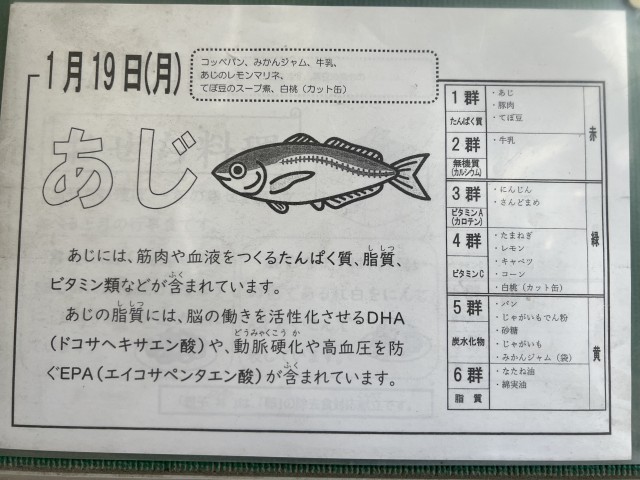 1月19日(月)
コッペパン、みかんジャム、牛乳、
あじのレモンマリネ、
てぼ豆のスープ煮、白桃（カット缶）
あじ
あじには、筋肉や血液をつくるたんぱく質、脂質、
ししつ
ビタミン類などが含まれています。
ふく
あじの脂質には、脳の働きを活性化させるDHA
ししつ
（ドコサヘキサエン酸）や、動脈硬化や高血圧を防
どうみゃくこうか
ぐEPA（エイコサペンタエン酸）が含まれています。
ふく
1群
たんぱく質
・あじ
・豚肉
・てぼ豆
2群
無機質
(カルシウム)
・牛乳
赤
3群
ビタミンA
(カロテン)
・にんじん
・さんどまめ
4群
ビタミンC
・たまねぎ
・レモン
・キャベツ
・コーン
・白桃（カット缶）
緑
5群
炭水化物
・パン
・じゃがいもでん粉
・砂糖
・じゃがいも
・みかんジャム（袋）
6群
脂質
・なたね油
・綿実油
黄